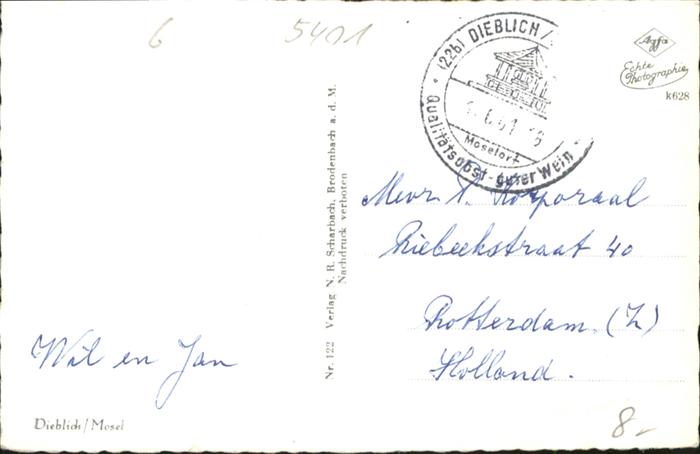 6
5401
(22b) DIEBLICH /
Moselort
Qualitätsobst - guter Wein
Agfa
Echte
Photographie
k628
Nr. 122 Verlag N. R. Scharbach, Brodenbach a. d. M.
Nachdruck verboten
Mevr. Korporaal
Riebeekstraat 40
Rotterdam. (Z)
Holland.
Wil en Jan
Dieblich/Mosel
8,-